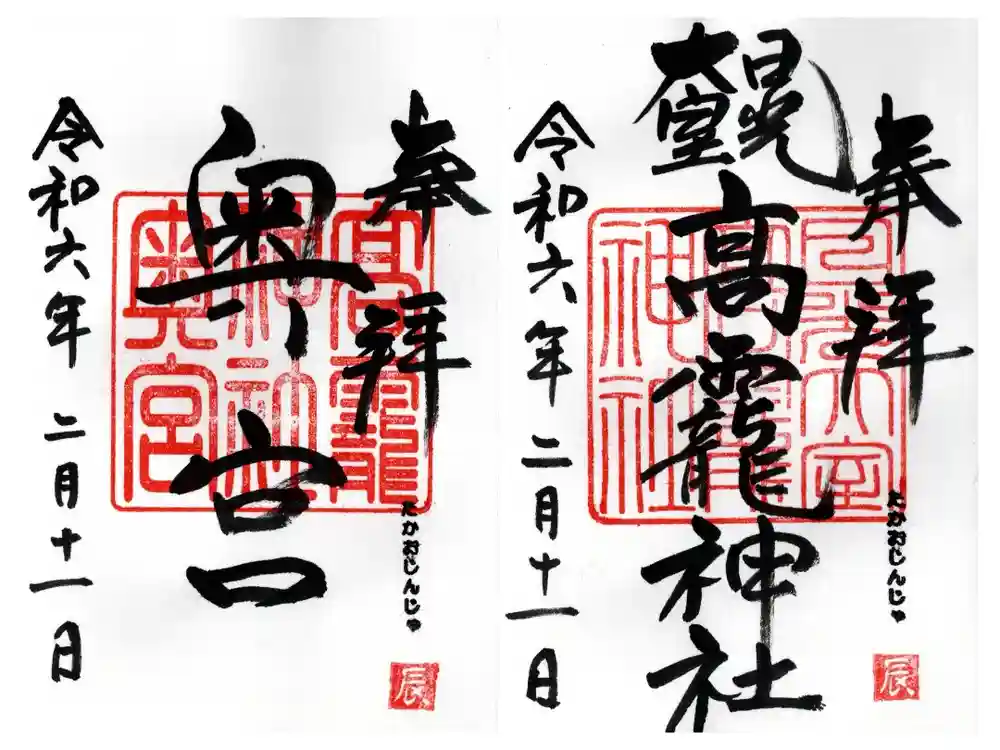 奉拝
たかおじんじゃ
辰
日光
大室
高龗神社
日光大室
高龗
神社
令和六年 二月十一日
奉拝
たかおじんじゃ
辰
奥宮
高龗
神社
奥宮
令和六年 二月十一日